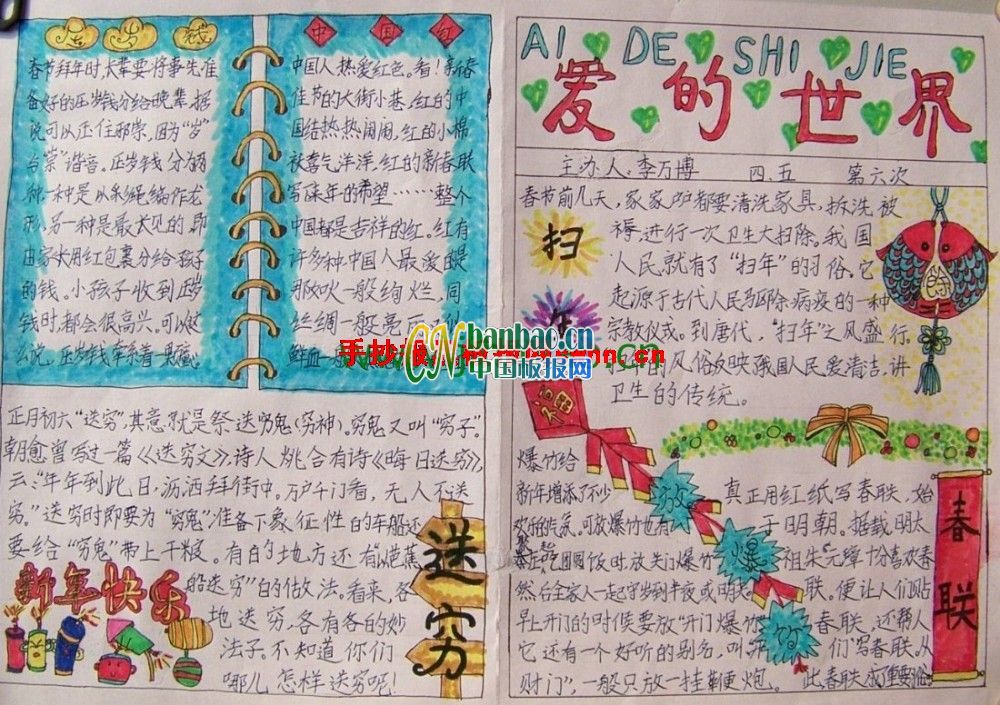 压岁钱
春节拜年时,长辈要将事先准
备好的压岁钱分给晚辈,据
说可以压住邪祟,因为"岁"
与"祟"谐音。压岁钱分为两
种一种是以彩绳编作龙
形,另一种是最常见的即
由家长用红包裹分给孩子
的钱。小孩子收到压岁
钱时,都会很高兴。可以这
么说,压岁钱牵系着一
中国红
中国人热爱红色。看!新春
佳节的大街小巷,红的中
国结热热闹闹,红的小棉
袄喜气洋洋,红的新春联
写来年的希望……整个
中国都是吉祥的红。红有
许多种中国人最爱的是
那火一般绚烂,同
丝绸一般亮
鲜血一般
正月初六"送穷",其意就是祭送穷鬼(穷神)。穷鬼又叫"穷子"。
朝愈曾写过一篇《送穷文》,诗人姚合有诗《晦日送穷》,
云:"年年到此日,沥洒拜街中。万户千门看,无人不送
穷。"送穷时即要为"穷鬼"准备下象征性的车船还
要给"穷鬼"带上干粮。有的地方还有"燃蕉
船送穷"的做法。看来,各
地送穷,各有各的妙
法子。不知道你们
哪儿怎样送穷呢!
送穷
新年快乐
AI DE SHI JIE
爱的世界
主办人:李万博 四.五 第六次
扫年
春节前几天,家家户都要清洗家具,拆洗被
褥,进行一次卫生大扫除。我国
人民就有了"扫年"的习俗。它
起源于古代人民驱除病疫的一种
宗教仪式。到唐代,"扫年"之风盛行。
的风俗反映我国人民爱清洁,讲
卫生的传统。
福
放爆竹
爆竹给
新年增添了不少
欢乐的气氛。可放爆竹也有
吃团圆饭时放关门爆竹
然后全家人一起守岁到半夜或明天
早上开门的时候要放"开门爆竹
它还有一个好听的别名,叫
财门",一般只放一挂鞭炮。
春联
真正用红纸写春联,始
于明朝。据载明太
祖朱元璋十分喜欢春
联,便让人们贴
春联,还帮人
们写春联,从
此,春联成了重要
banbao.cn
中国板报网
手抄报